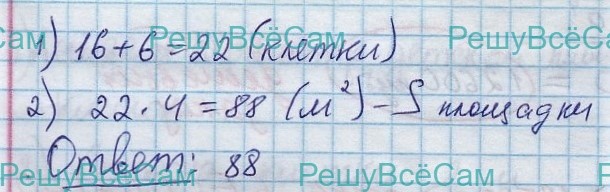 1) 16+6=22 (клетки)
РешуВсёСам
2) 22·4=88 (м²) – S площадки
Ответ: 88
РешуВсёСам РешуВсёСам